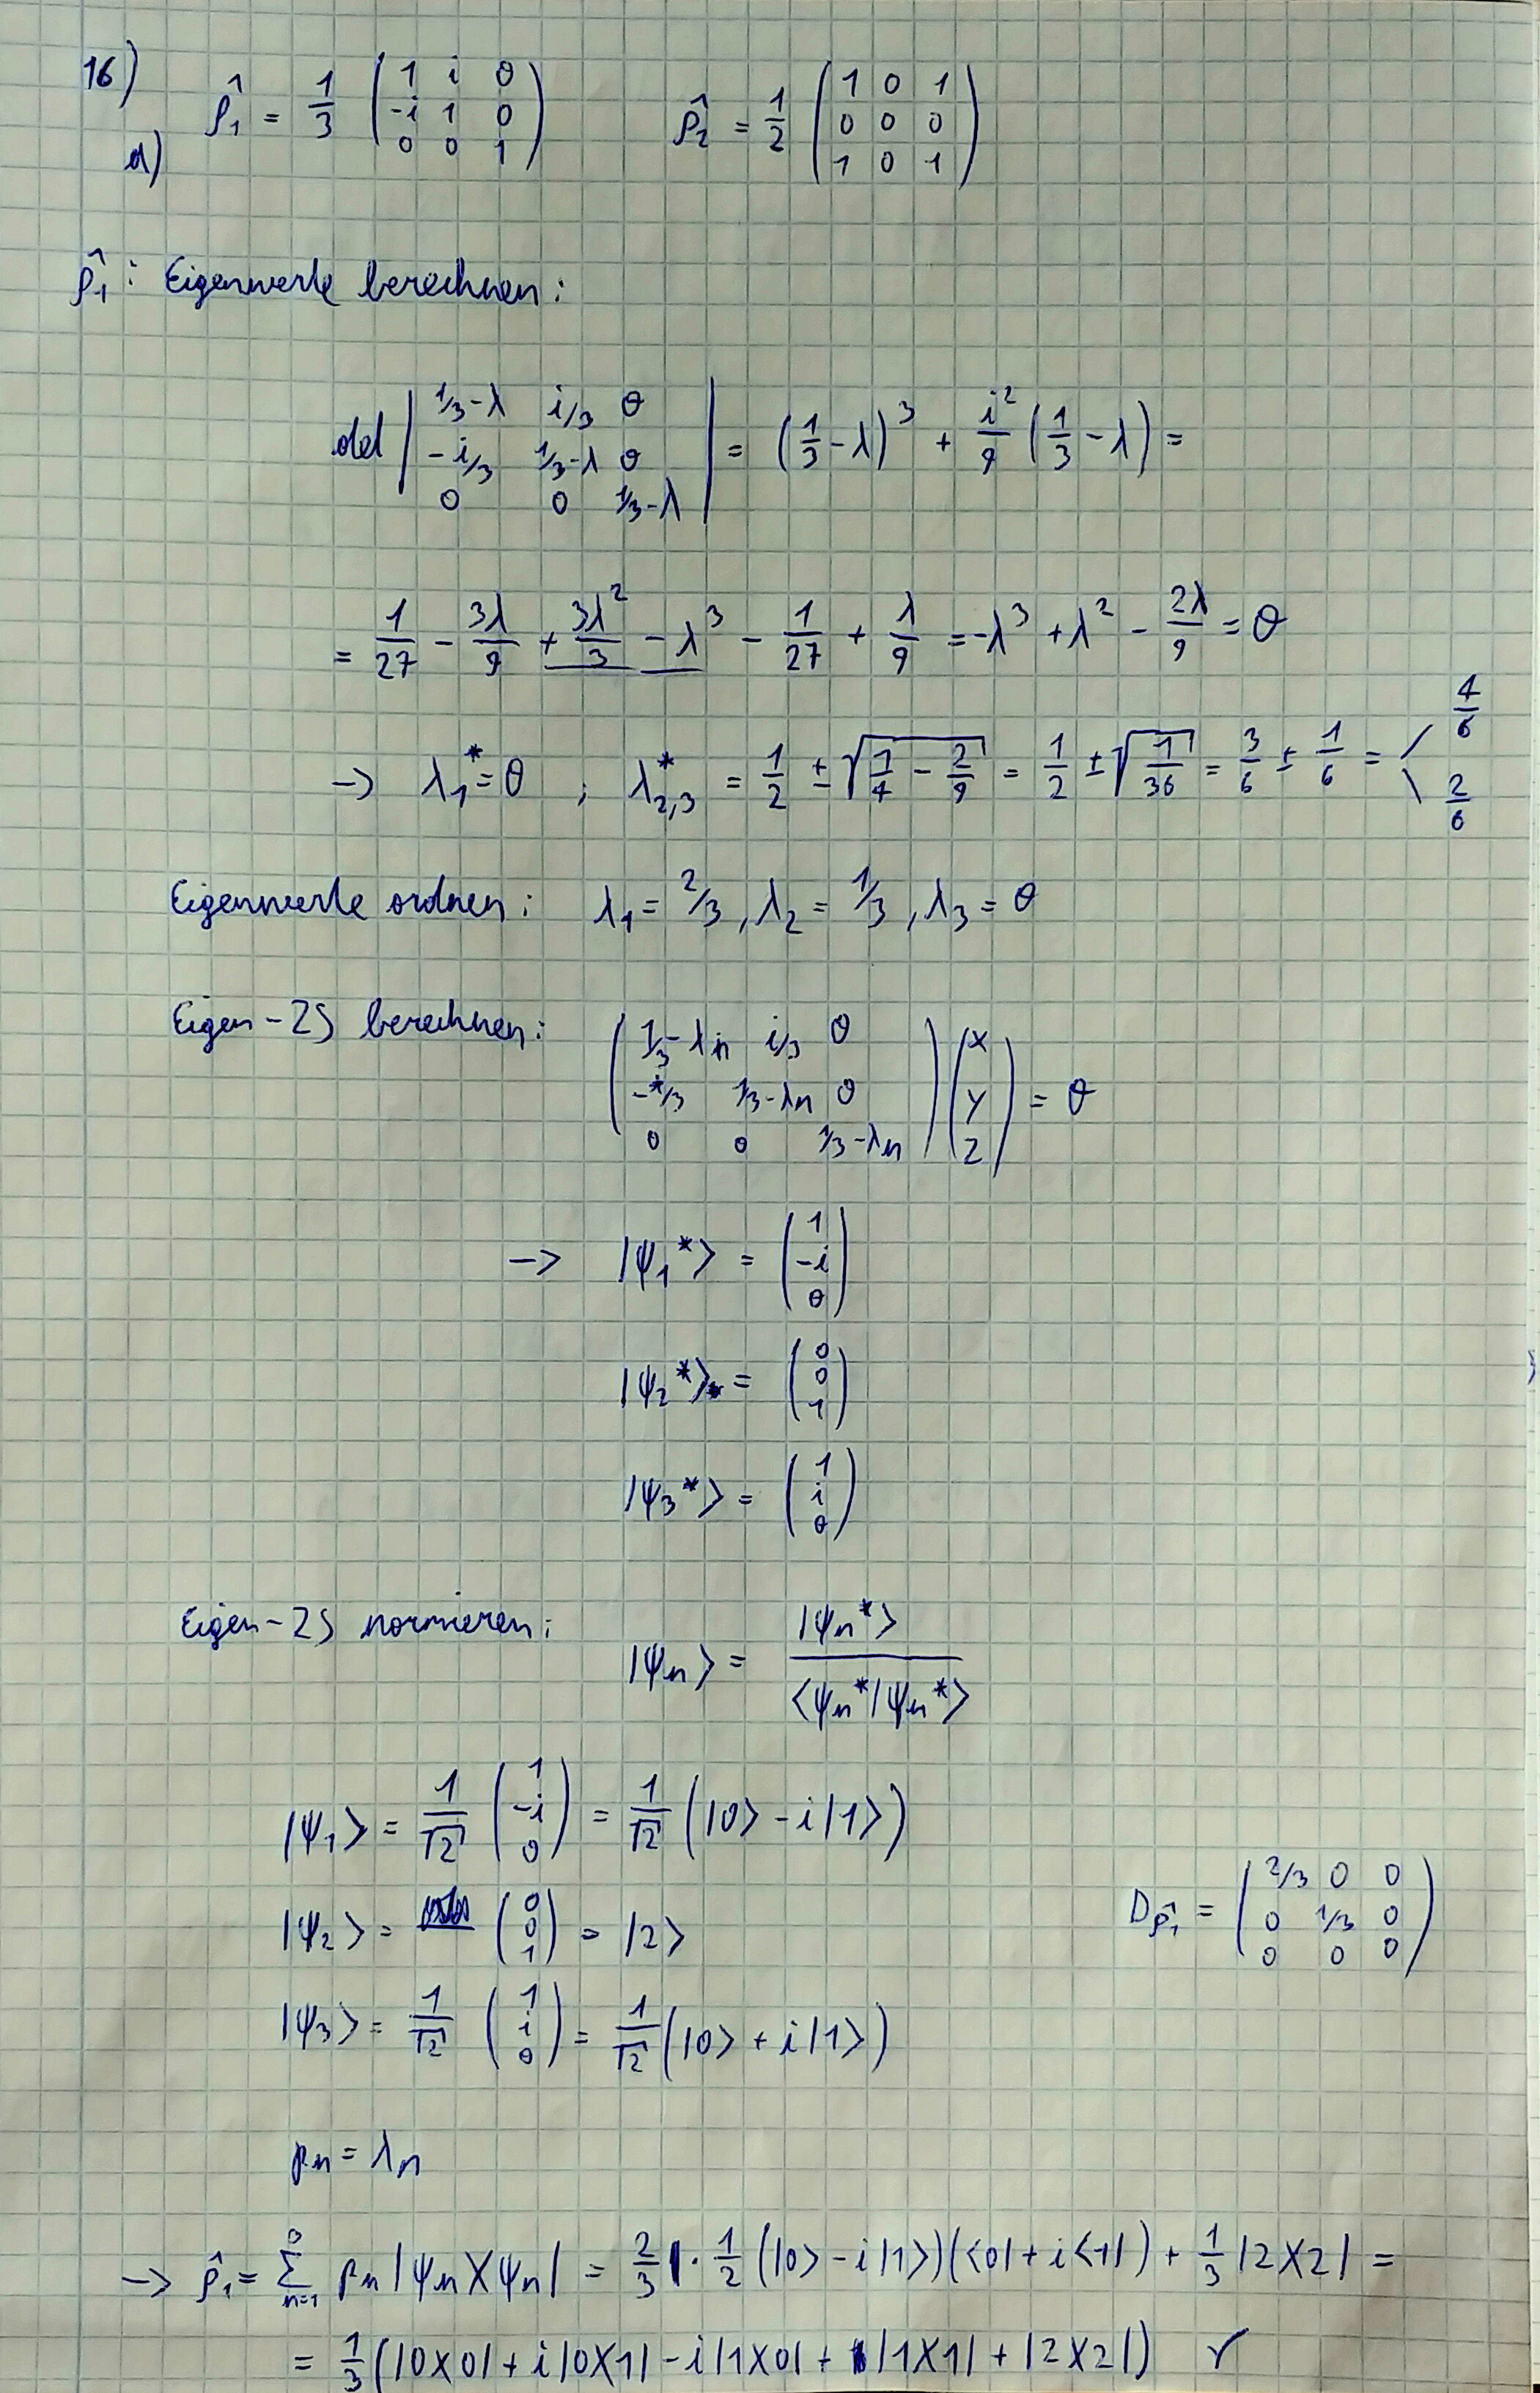 16)
a) ρ̂₁ = 1/3 (1 i 0; -i 1 0; 0 0 1)    ρ̂₂ = 1/2 (1 0 1; 0 0 0; 1 0 1)
ρ̂₁: Eigenwerte berechnen:
det |1/3-λ i/3 0; -i/3 1/3-λ 0; 0 0 1/3-λ| = (1/3 - λ)³ + i²/9 (1/3 - λ) =
= 1/27 - 3λ/9 + 3λ²/3 - λ³ - 1/27 + λ/9 = -λ³ + λ² - 2λ/9 = 0
→ λ₁* = 0 ; λ₂,₃* = 1/2 ± √(1/4 - 2/9) = 1/2 ± √(1/36) = 3/6 ± 1/6 = < 4/6 2/6
Eigenwerte ordnen: λ₁ = 2/3, λ₂ = 1/3, λ₃ = 0
Eigen-ZS berechnen: (1/3-λn i/3 0; -i/3 1/3-λn 0; 0 0 1/3-λn) (x; y; z) = 0
→ |ψ₁*⟩ = (1; -i; 0)
|ψ₂*⟩ = (0; 0; 1)
|ψ₃*⟩ = (1; i; 0)
Eigen-ZS normieren: |ψn⟩ = |ψn*⟩ / ⟨ψn*|ψn*⟩
|ψ₁⟩ = 1/√2 (1; -i; 0) = 1/√2 (|0⟩ - i|1⟩)
|ψ₂⟩ = (0; 0; 1) = |2⟩    Dρ̂₁ = (2/3 0 0; 0 1/3 0; 0 0 0)
|ψ₃⟩ = 1/√2 (1; i; 0) = 1/√2 (|0⟩ + i|1⟩)
pn = λn
→ ρ̂₁ = Σₙ₌₁³ pn |ψn⟩⟨ψn| = 2/3 · 1/2 (|0⟩ - i|1⟩)(⟨0| + i⟨1|) + 1/3 |2⟩⟨2| =
= 1/3 (|0⟩⟨0| + i|0⟩⟨1| - i|1⟩⟨0| + |1⟩⟨1| + |2⟩⟨2|) ✓